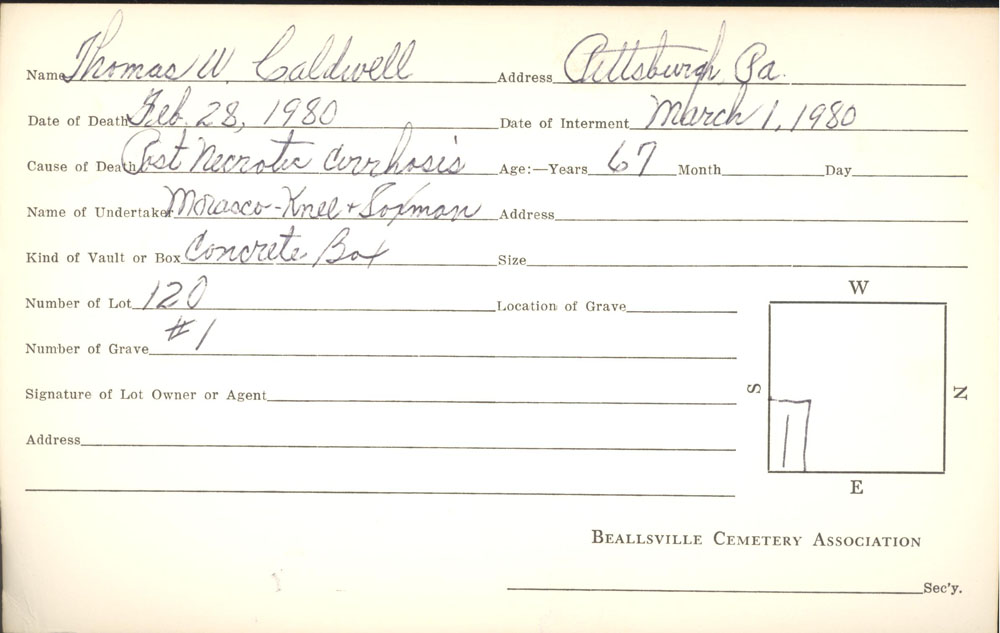 Name Thomas W. Caldwell Address Pittsburgh, Pa.
Date of Death Feb. 28, 1980 Date of Interment March 1, 1980
Cause of Death Post Necrotic Cirrhosis Age:—Years 67 Month Day
Name of Undertaker Morasco-Knee + Soxman Address
Kind of Vault or Box Concrete Box Size
Number of Lot 120 Location of Grave
W
Number of Grave #1
Signature of Lot Owner or Agent
S N
Address
E
BEALLSVILLE CEMETERY ASSOCIATION
Sec'y.